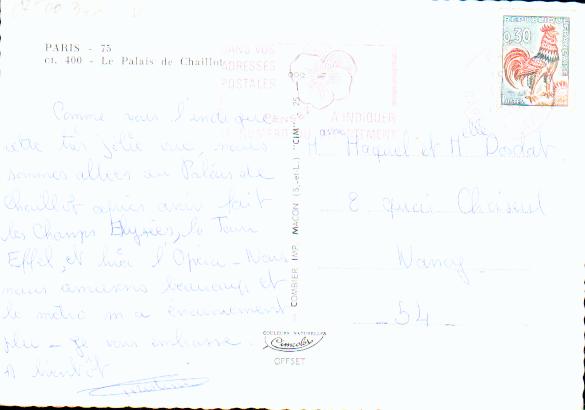 PARIS - 75
CI. 400 - Le Palais de Chaillot
DANS VOS
ADRESSES
POSTALES
A INDIQUER
REPUBLIQUE FRANCAISE
0,30
POSTES
Comme vous l'indique
cette très jolie vue, nous
sommes allées au Palais de
Chaillot après avoir fait
les Champs Elysées, la Tour
Effel, et hier l'Opéra - Nous
nous amusons beaucoup et
le métro m'a énormément
plu - Je vous embrasse.
A bientôt
COMBIER IMP. MACON (S.-et-L.) "CIM"
COULEURS NATURELLES
Cimcolor
OFFSET
M et Melle
8 quai Choiseul
Nancy
- 54 -